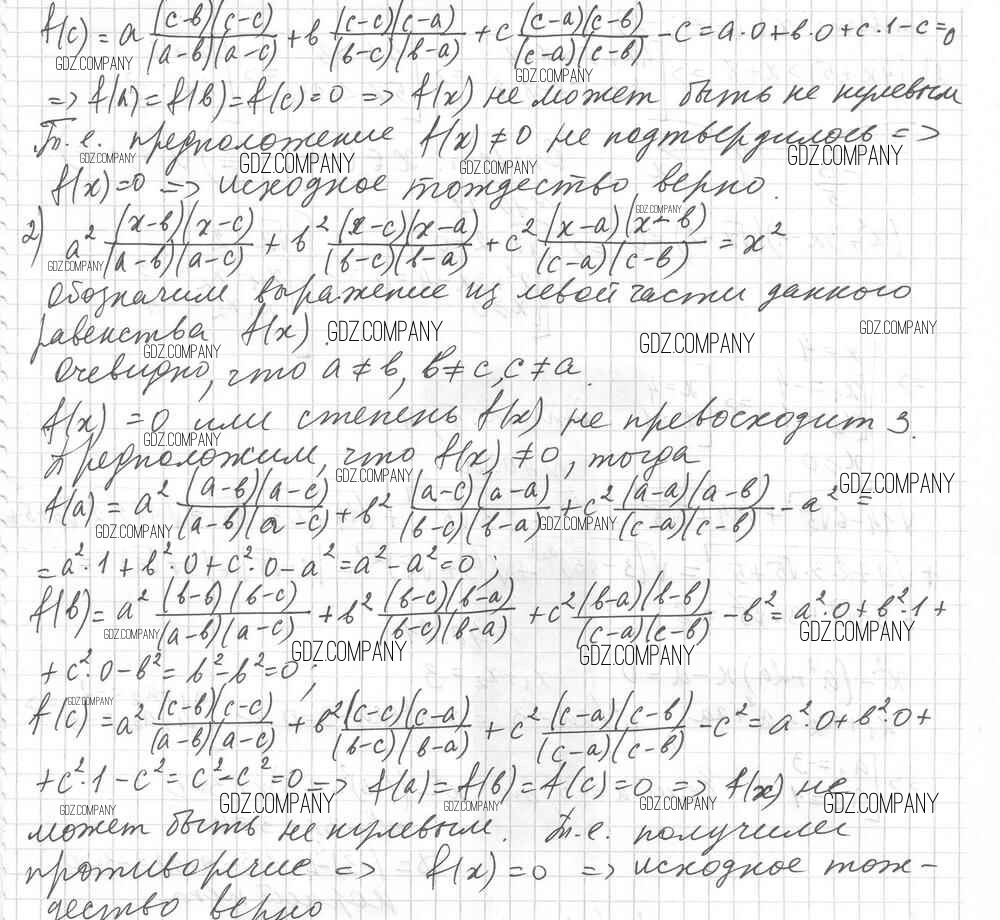 f(c) = a (c-в)(c-c)/(a-в)(a-c) + в (c-c)(c-a)/(в-c)(в-a) + c (c-a)(c-в)/(c-a)(c-в) - c = a·0+в·0+c·1-c=0
GDZ.COMPANY GDZ.COMPANY
=> f(a)=f(в)=f(c)=0 => f(x) не может быть не нулевым
Т.е. предположение f(x)≠0 не подтвердилось =>
GDZ.COMPANY GDZ.COMPANY GDZ.COMPANY GDZ.COMPANY
f(x)=0 => исходное тождество верно.
GDZ.COMPANY
2) a² (x-в)(x-c)/(a-в)(a-c) + в² (x-c)(x-a)/(в-c)(в-a) + c² (x-a)(x-в)/(c-a)(c-в) = x²
GDZ.COMPANY
Обозначим выражение из левой части данного
равенства f(x).
GDZ.COMPANY GDZ.COMPANY GDZ.COMPANY GDZ.COMPANY
Очевидно, что a≠в, в≠c, c≠a.
f(x)=0 или степень f(x) не превосходит 3.
GDZ.COMPANY
Предположим, что f(x)≠0, тогда
GDZ.COMPANY GDZ.COMPANY
f(a) = a² (a-в)(a-c)/(a-в)(a-c) + в² (a-c)(a-a)/(в-c)(в-a) + c² (a-a)(a-в)/(c-a)(c-в) - a² =
GDZ.COMPANY GDZ.COMPANY
= a²·1 + в²·0 + c²·0 - a² = a² - a² = 0;
f(в) = a² (в-в)(в-c)/(a-в)(a-c) + в² (в-c)(в-a)/(в-c)(в-a) + c² (в-a)(в-в)/(c-a)(c-в) - в² = a²·0 + в²·1 +
GDZ.COMPANY GDZ.COMPANY GDZ.COMPANY GDZ.COMPANY
+ c²·0 - в² = в² - в² = 0;
GDZ.COMPANY
f(c) = a² (c-в)(c-c)/(a-в)(a-c) + в² (c-c)(c-a)/(в-c)(в-a) + c² (c-a)(c-в)/(c-a)(c-в) - c² = a²·0 + в²·0 +
+ c²·1 - c² = c² - c² = 0 => f(a)=f(в)=f(c)=0 => f(x) не
GDZ.COMPANY GDZ.COMPANY GDZ.COMPANY GDZ.COMPANY GDZ.COMPANY
может быть не нулевым. Т.е. получили
противоречие => f(x)=0 => исходное тож-
дество верно